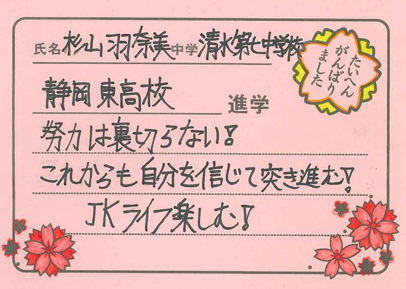 氏名 杉山 羽奈美 中学 清水第七中学校
たいへん
がんばり
ました
静岡東高校 進学
努力は裏切らない!
これからも自分を信じて突き進む!
JKライフ楽しむ!